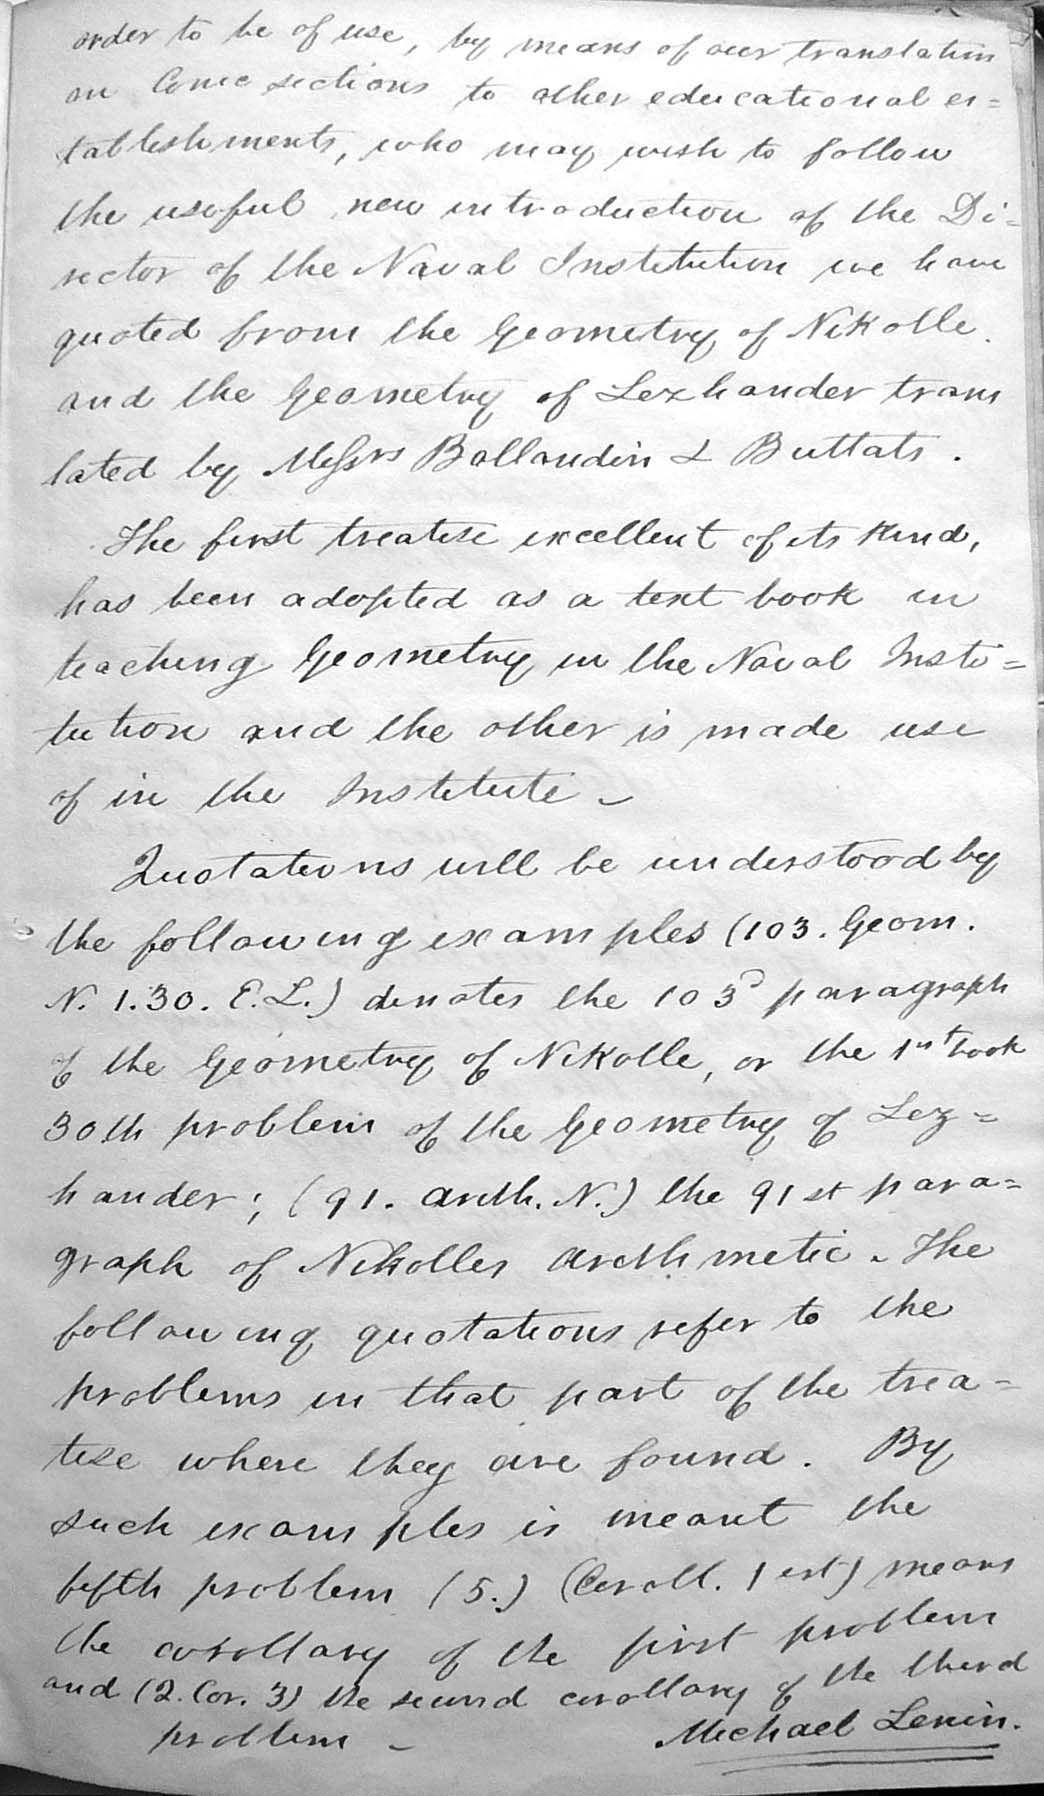 order to be of use, by means of our translation
on Conic sections to other educational es=
tablishments, who may wish to follow
the useful new introduction of the Di=
rector of the Naval Institution we have
quoted from the Geometry of Nikolle.
and the Geometry of Lezhander trans
lated by Messrs Bollandin & Buttats.
The first treatise excellent of its kind,
has been adopted as a text book in
teaching Geometry in the Naval Insti=
tution and the other is made use
of in the Institute -
Quotations will be understood by
the following examples (103. Geom.
N. 1.30. E.L.) denotes the 103d paragraph
of the Geometry of Nikolle, or the 1st book
30th problem of the Geometry of Lez=
hander; (91. arith. N.) the 91st para=
graph of Nikolles arithmetic. The
following quotations refer to the
problems in that part of the trea=
tise where they are found. By
such examples is meant the
fifth problem (5.) (Coroll. 1st) means
the corollary of the first problem
and (2. Cor. 3) the second corollary of the third
problem -
Michael Lenin.